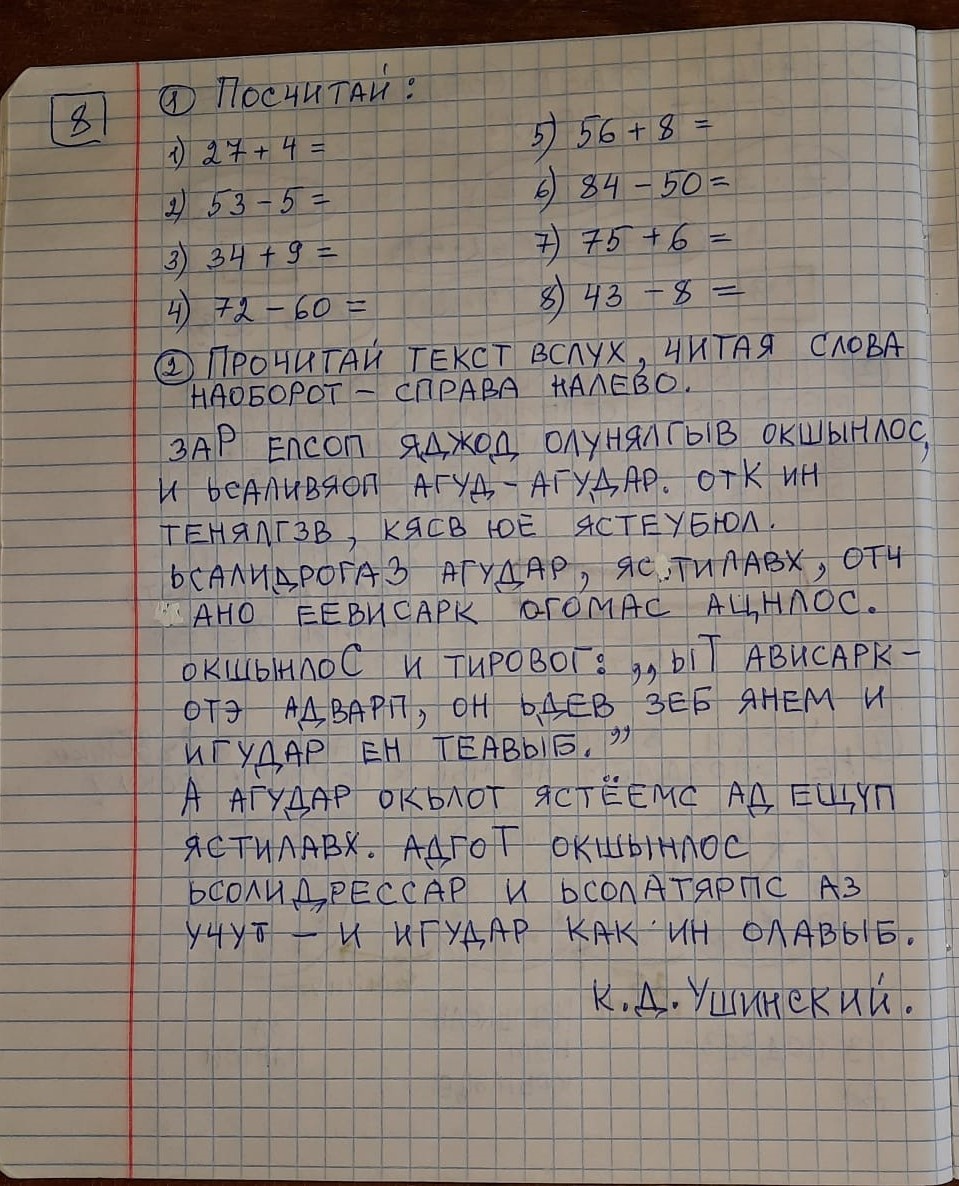 8
1 ПОСЧИТАЙ:
1) 27 + 4 =
2) 53 - 5 =
3) 34 + 9 =
4) 72 - 60 =
5) 56 + 8 =
6) 84 - 50 =
7) 75 + 6 =
8) 43 - 8 =
2 ПРОЧИТАЙ ТЕКСТ ВСЛУХ, ЧИТАЯ СЛОВА
НАОБОРОТ – СПРАВА НАЛЕВО.
ЗАР ЕЛСОП ЯДЖОД ОЛУНЯЛГЫВ ОКШЫНЛОС,
И ЬСАЛИВЯОП АГУД-АГУДАР. ОТК ИН
ТЕНЯЛГЗВ, КЯСВ ЮЕ ЯСТЕУБЮЛ.
ЬСАЛИДРОГАЗ АГУДАР, ЯСТИЛАВХ, ОТЧ
АНО ЕЕВИСАРК ОГОМАС АЦНЛОС.
ОКШЫНЛОС И ТИРОВОГ: „ЫТ АВИСАРК –
ОТЭ АДВАРП, ОН ЬДЕВ ЗЕБ ЯНЕМ И
ИГУДАР ЕН ТЕАВЫБ.”
А АГУДАР ОКЬЛОТ ЯСТЁЕМС АД ЕЩУП
ЯСТИЛАВХ. АДГОТ ОКШЫНЛОС
ЬСОЛИДРЕССАР И ЬСОЛАТЯРПС АЗ
УЧУТ – И ИГУДАР КАК ИН ОЛАВЫБ.
К.Д.УШИНСКИЙ.